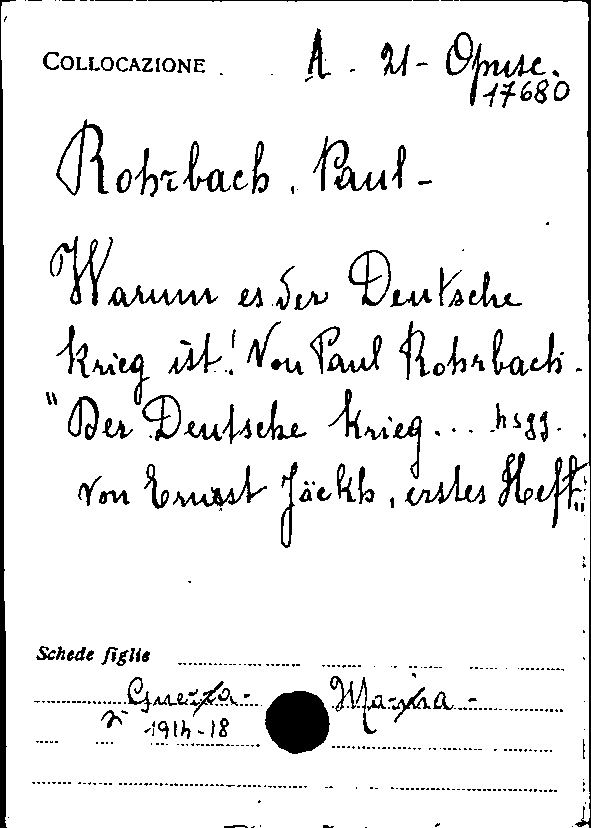 COLLOCAZIONE A. 21 - Opusc.
17680
Rohrbach, Paul -
Warum es der Deutsche
Krieg ist! Von Paul Rohrbach -
"Der Deutsche Krieg... hsgg.
von Ernst Jäckh, erstes Heft"
Schede figlie
Guerra -
1914-18